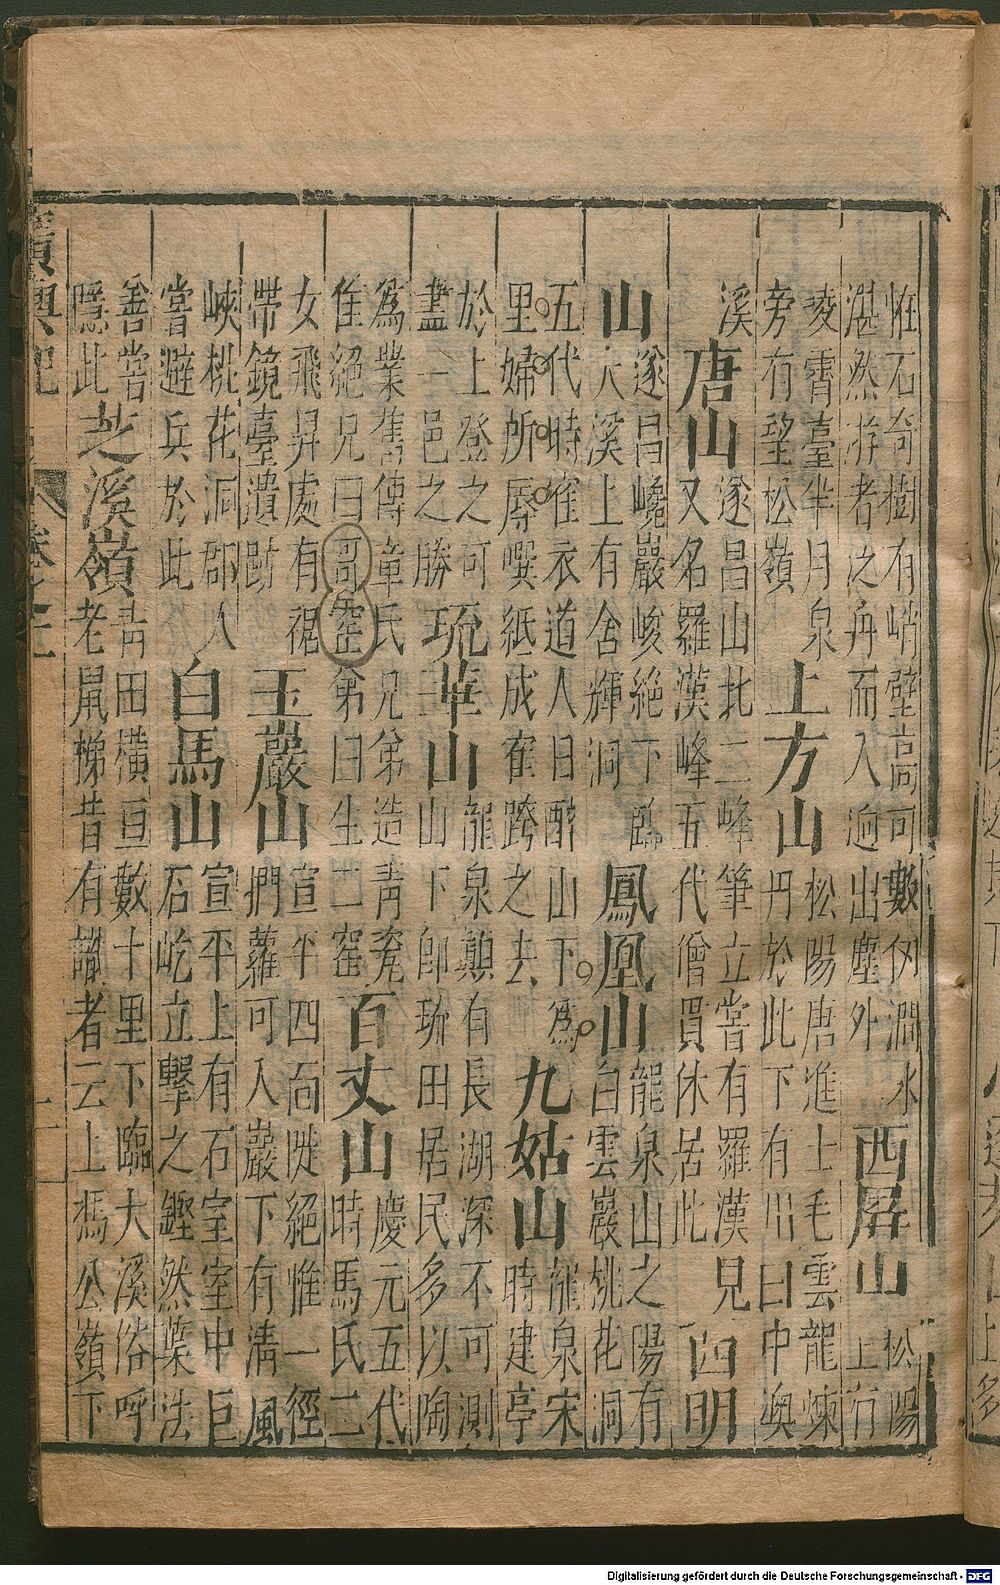 恠石奇樹有峭壁高可數仞澗水湛然游者泛舟而入逈出塵外西屏山松陽上有
凌霄臺半月泉旁有望松嶺上方山松陽唐進士毛雲龍煉丹於此下有川曰中奥
溪唐山遂昌山北二峰筆立嘗有羅漢見又名羅漢峰五代僧貫休居此四明
山遂昌巉巖峻絕下臨大溪上有舍輝洞鳳凰山龍泉山之陽有白雲巖桃花洞
五代時隺衣道人日酣山下為里婦所辱噀紙成隺跨之去九姑山龍泉宋時建亭
於上登之可盡一邑之勝琉華山龍泉巔有長湖深不可測山下即琉田居民多以陶
為業舊傳章氏兄弟造青瓷隹絕兄曰哥窑弟曰生二窑百丈山慶元五代時馬氏二
女飛昇處有裙帶鏡臺遺跡玉巖山宣平四面陡絕惟一徑捫蘿可入巖下有清風
峽桃花洞郡人嘗避兵於此白馬山宣平上有石室室中巨石屹立擊之鏗然葉法
善嘗隱此芝溪嶺青田橫亘數十里下臨大溪俗呼老鼠梯昔有識者云上馮公嶺下
廣輿記 卷之
Digitalisierung gefördert durch die Deutsche Forschungsgemeinschaft - DFG